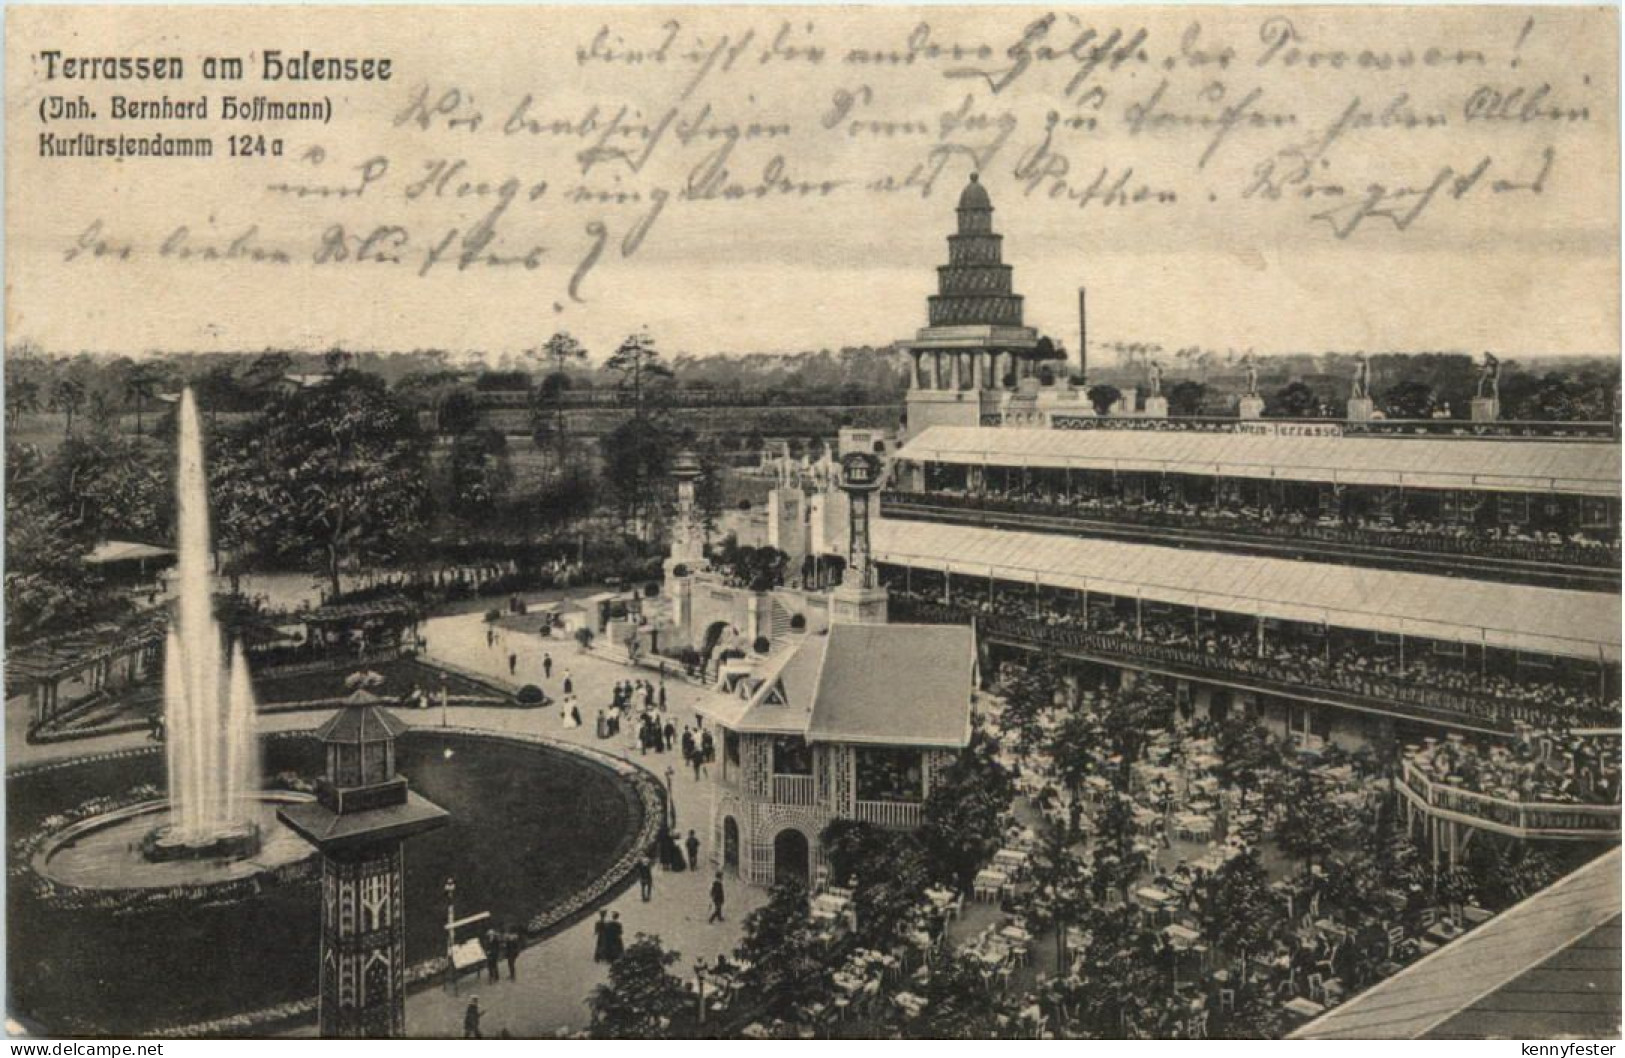 Terrassen am Halensee
(Inh. Bernhard Hoffmann)
Kurfürstendamm 124a
dies ist die andere Hälfte der Terrassen!
Wir beabsichtigen Sonntag zu taufen haben Albin
und Hugo eingeladen als Pathen. Wie geht es
der lieben Mutter?
Wein-Terrasse
© DELCAMPE.NET
kennyfester